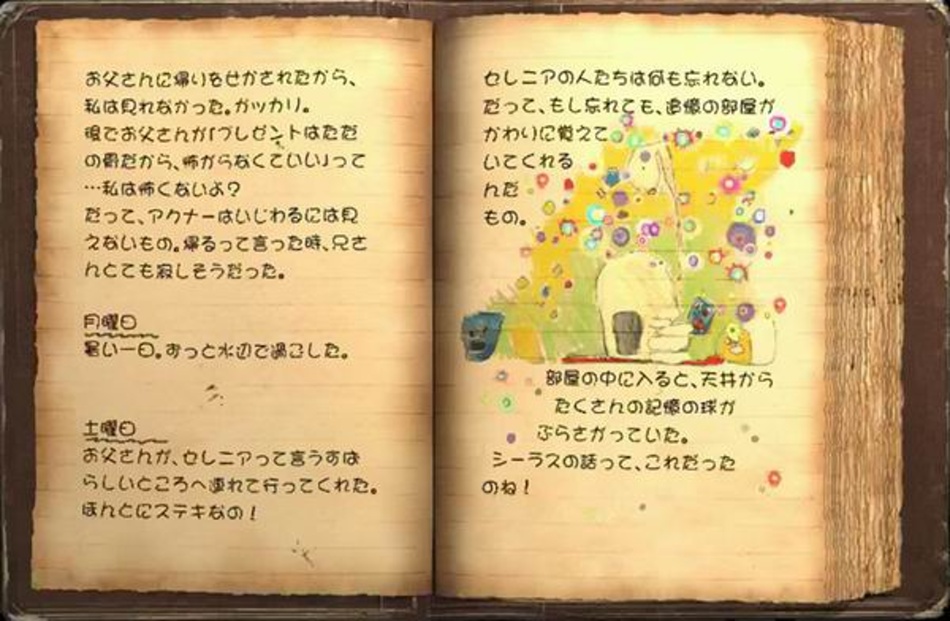 お父さんに帰りをせかされたから、
私は見れなかった。ガッカリ。
後でお父さんが「プレゼントはただ
の骨だから、怖がらなくていい」って
…私は怖くないよ?
だって、アクナーはいじわるには見
えないもの。帰るって言った時、兄さ
んとても寂しそうだった。
月曜日
暑い一日。ずっと水辺で過ごした。
土曜日
お父さんが、セレニアって言うすば
らしいところへ連れて行ってくれた。
ほんとにステキなの!
セレニアの人たちは何も忘れない。
だって、もし忘れても、追憶の部屋が
かわりに覚えて
いてくれる
んだ
もの。
部屋の中に入ると、天井から
たくさんの記憶の球が
ぶらさがっていた。
シーラスの話って、これだった
のね!